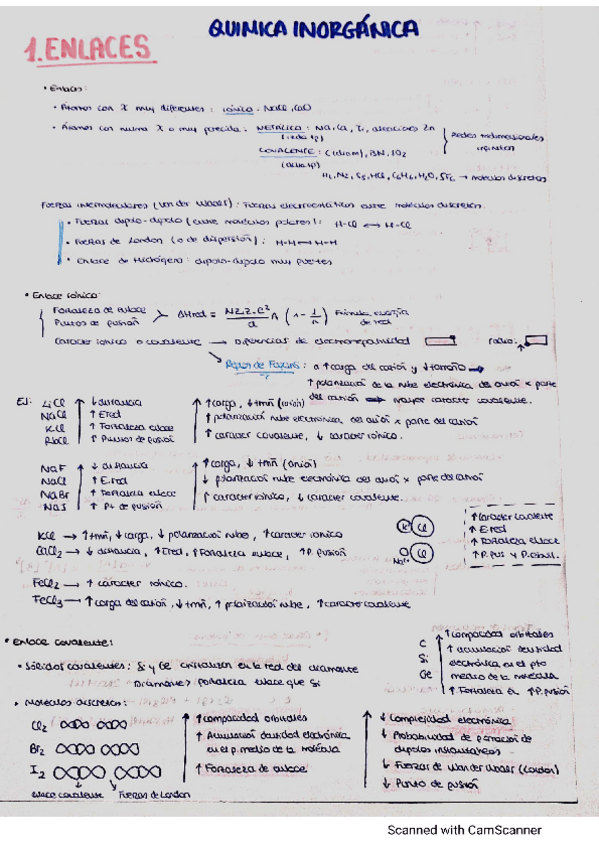 QUIMICA INORGÁNICA
1. ENLACES
• Enlaces:
• Átomos con X muy diferentes: iónico: NaCl, CaO
• Átomos con misma X o muy parecida: METÁLICO: Na, Ca, Ti, aleaciones Zn
COVALENTE: C(diam), BN, SiO2
Redes tridimensionales
infinitas
H2, N2, S8, HCl, C6H6, H2O, SF6 → moléculas discretas
Fuerzas intermoleculares (Van der Waals): Fuerzas electrostáticas entre moléculas discretas.
• Fuerzas dipolo-dipolo (entre moléculas polares): H-Cl ⟷ H-Cl
• Fuerzas de London (o de dispersión): H-H ⟷ H-H
• Enlace de Hidrógeno: dipolo-dipolo muy fuertes
• Enlace iónico:
Fortaleza de enlace
Puntos de fusión
ΔHred = NZ·Z·e²/d A (1 - 1/n) Fórmula energía
de red
Carácter iónico o covalente → diferencias de electronegatividad radio:
Reglas de Fajans: a ↑ carga del catión y ↓ tamaño →
↑ polarización de la nube electrónica del anión x parte
del catión → mayor carácter covalente.
EJ: LiCl ↓ distancia ↑ carga, ↓ tmñ (catión)
NaCl ↑ Ered ↑ polarización nube electrónica del anión x parte del catión
KCl ↑ Fortaleza enlace ↑ carácter covalente, ↓ carácter iónico.
RbCl ↑ Puntos de fusión
NaF ↓ distancia ↑ carga, ↓ tmñ (anión)
NaCl ↑ E.red ↓ polarización nube electrónica del anión x parte del catión
NaBr ↑ Fortaleza enlace ↑ carácter iónico, ↓ carácter covalente.
NaI ↑ Pt de fusión
KCl → ↑ tmñ, ↓ carga, ↓ polarización nube, ↑ carácter iónico K Cl
CaCl2 → ↓ distancia, ↑ Ered, ↑ Fortaleza enlace, ↑ P. fusión Cl
↑ Carácter covalente
↑ E.red
↑ Fortaleza enlace
↑ P. fus y P. ebull.
FeCl2 → ↑ carácter iónico.
FeCl3 → ↑ carga del catión, ↓ tmñ, ↑ polarización nube, ↑ carácter covalente
• Enlace covalente:
• Sólidos covalentes: Si y Ge cristalizan en la red del diamante
Diamante > fortaleza enlace que Si
C
Si
Ge
↑ Compacidad orbitales
↑ acumulación densidad
electrónica en el pto
medio de la molécula
↑ Fortaleza E, ↑ P. fusión
• Moléculas discretas:
Cl2 ↑ Compacidad orbitales ↓ Complejidad electrónica
↑ Acumulación densidad electrónica ↓ Probabilidad de formación de
Br2 en el p. medio de la molécula dipolos instantáneos
I2 ↑ Fortaleza de enlace ↓ Fuerzas de Van der Waals (London)
↓ Punto de fusión
Enlace covalente Fuerzas de London
Scanned with CamScanner